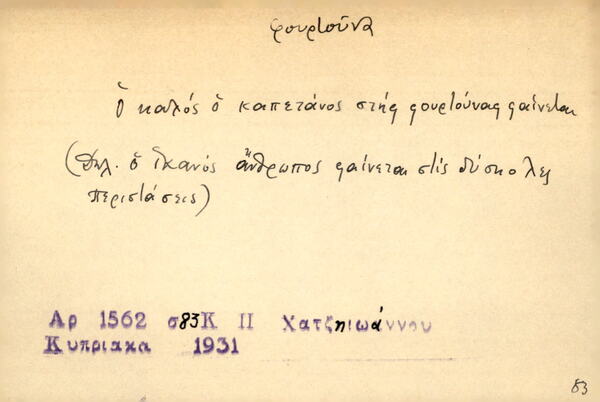 φουρτούνα
Ὁ καλός ὁ καπετάνος στής φουρτούνας φαίνεται
(Δηλ. ὁ ἱκανός ἄνθρωπος φαίνεται στίς δύσκολες
περιστάσεις)
Αρ 1562 σ83Κ ΙΙ Χατζηιωάννου
Κυπριακα 1931
83